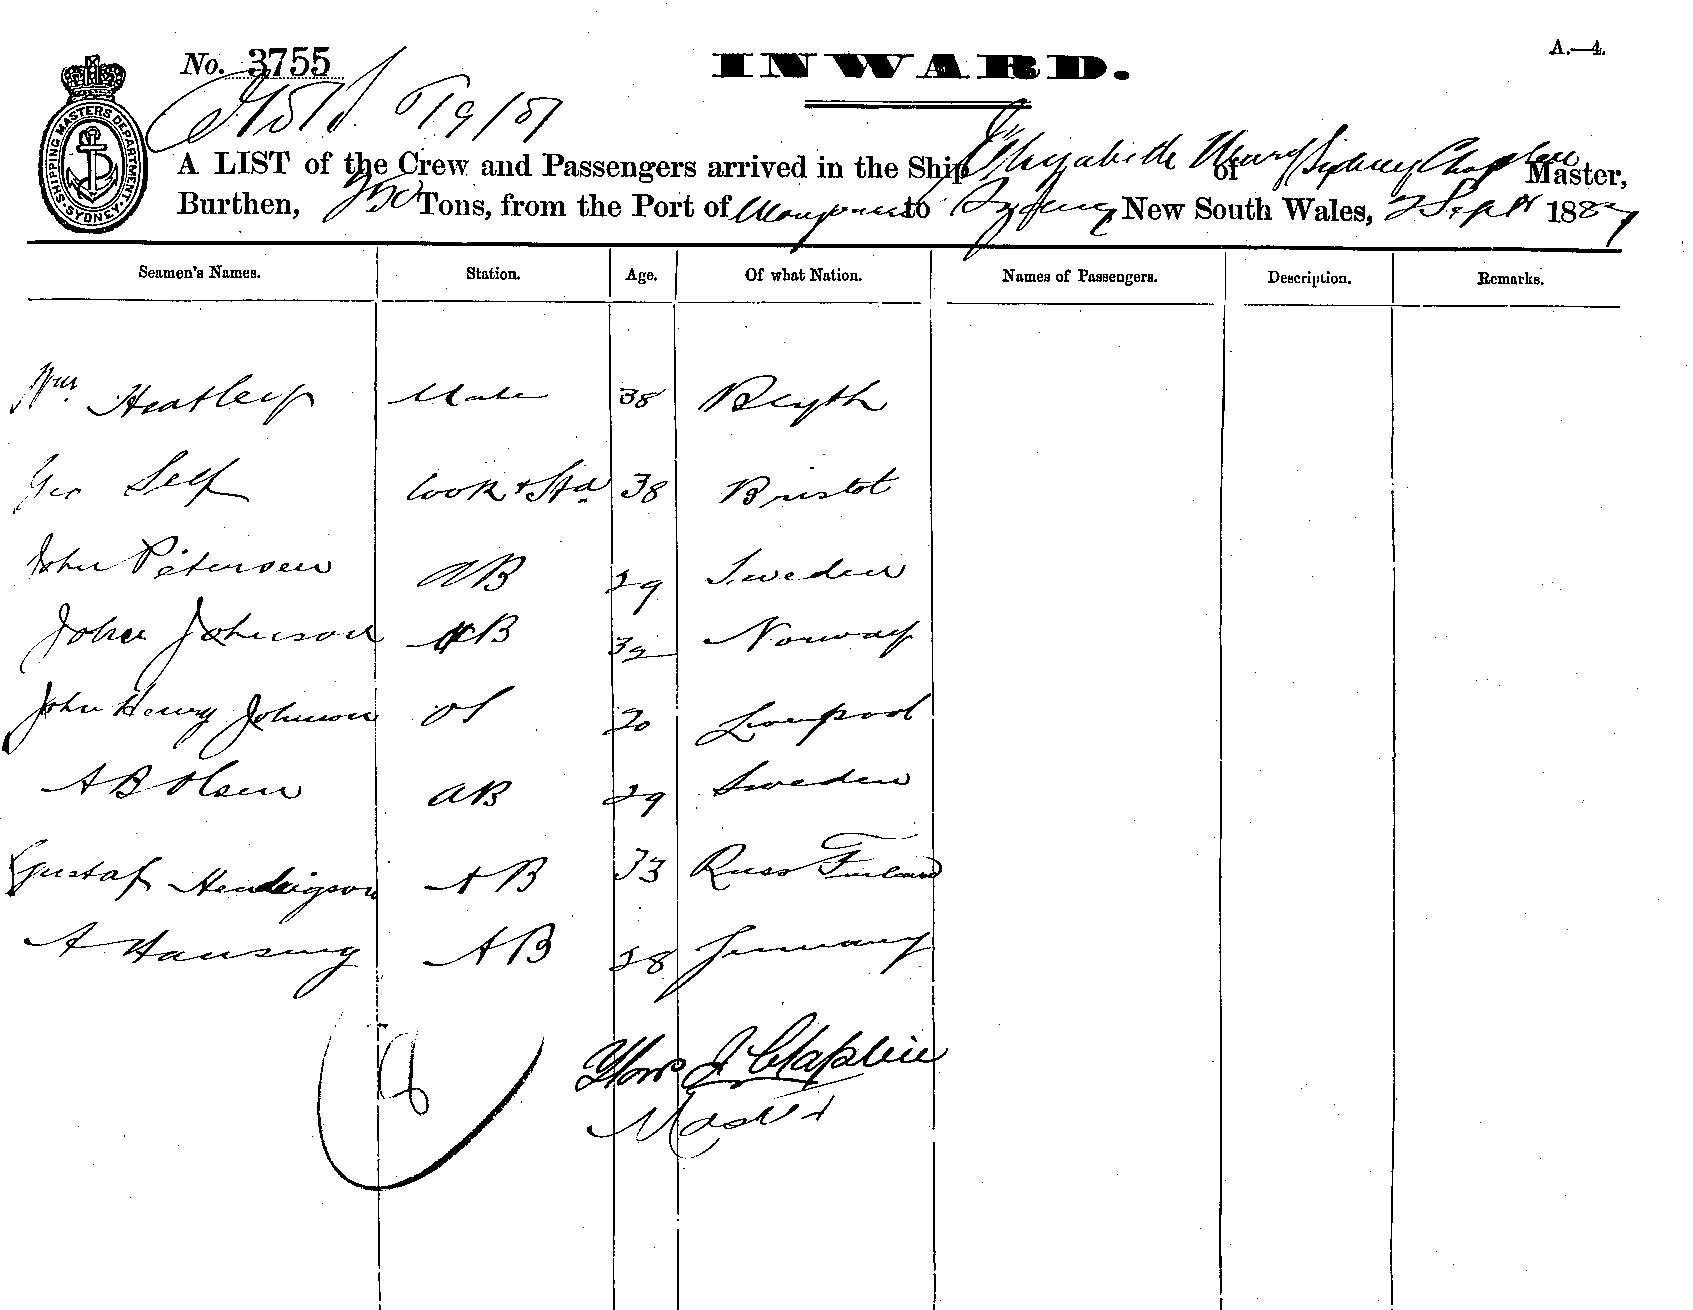 No. 3755
INWARD.
A.—4.
SHIPPING MASTERS DEPARTMENT SYDNEY
A LIST of the Crew and Passengers arrived in the Ship Elizabeth of Sydney Master,
Burthen, Tons, from the Port of to Sydney New South Wales, 2 Sept 1887
Seamen's Names. Station. Age. Of what Nation. Names of Passengers. Description. Remarks.
Wm Heatley Mate 38 Blyth
Geo Self Cook & Std 38 Bristol
John Petersen AB 29 Sweden
John Johnson AB 32 Norway
John Henry Johnson OS 20 Liverpool
A B Olsen AB 29 Sweden
Gustaf Hendrigson AB 33 Russ Finland
A Hansing AB 28 Germany
8
Master